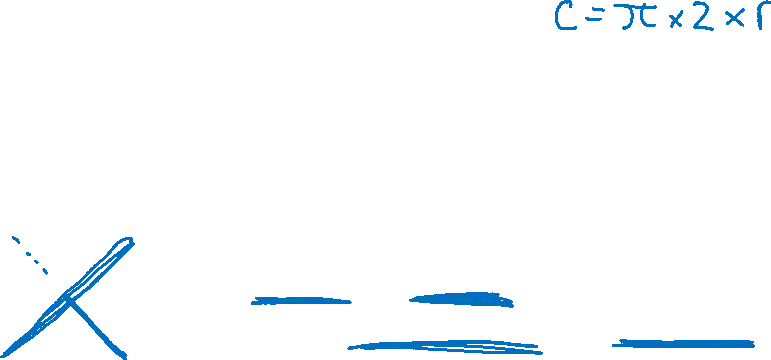 C = π × 2 × r